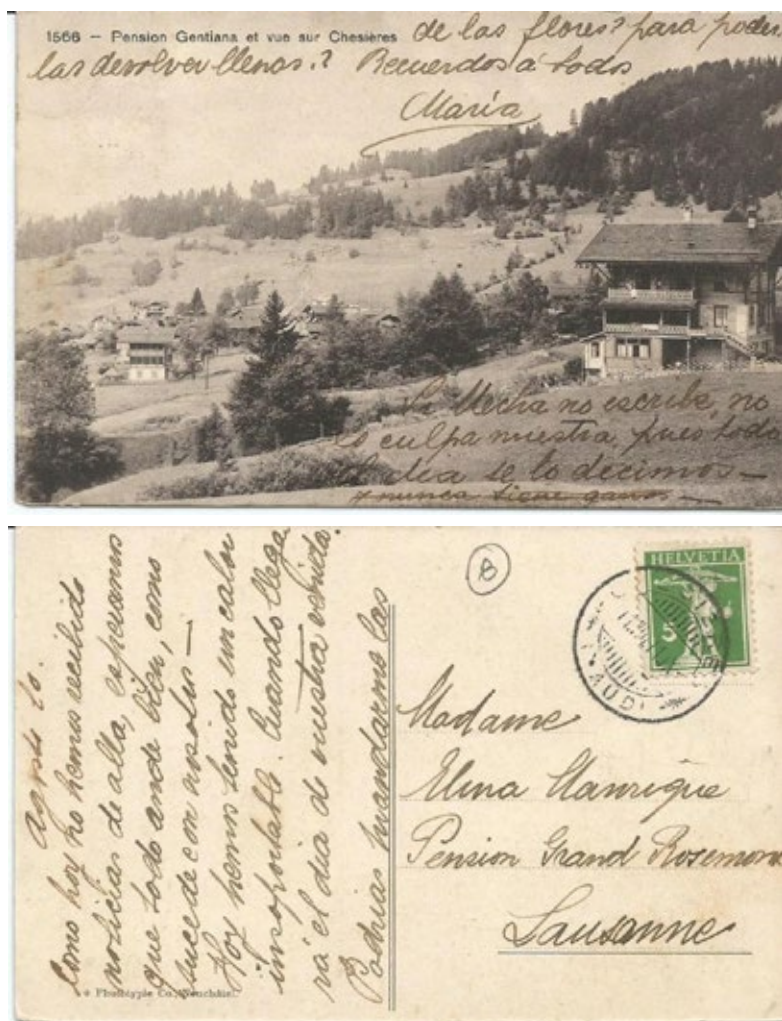 1566 — Pension Gentiana et vue sur Chesières
de las flores? para poder
las devolver llenas.? Recuerdos á todos
María
Si Mecha no escribe, no
es culpa nuestra, pues todo
el dia se lo decimos —
y nunca tiene ganas —
agosto 10.
Como hoy no hemos recibido
noticias de alla, esperamos
que todo ande bien, como
sucede con nosotros —
Hoy hemos tenido un calor
insoportable. Cuando llega
rá el dia de vuestra venida.
Podrias mandarme las
Phototypie Co., Neuchâtel.
8
HELVETIA
5
VAUD
Madame
Elina Manrique
Pension Grand Rosemont
Lausanne